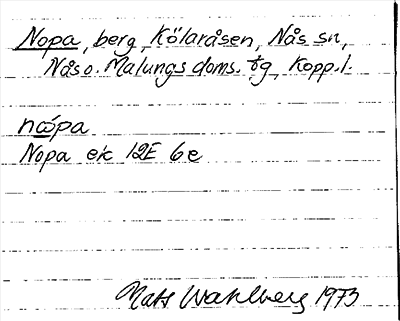 Nopa, berg, Kölaråsen, Nås sn,
Nås o. Malungs doms. tg, Kopp. l.
nωpa
Nopa ek 12E 6e
Mats Wahlberg 1973